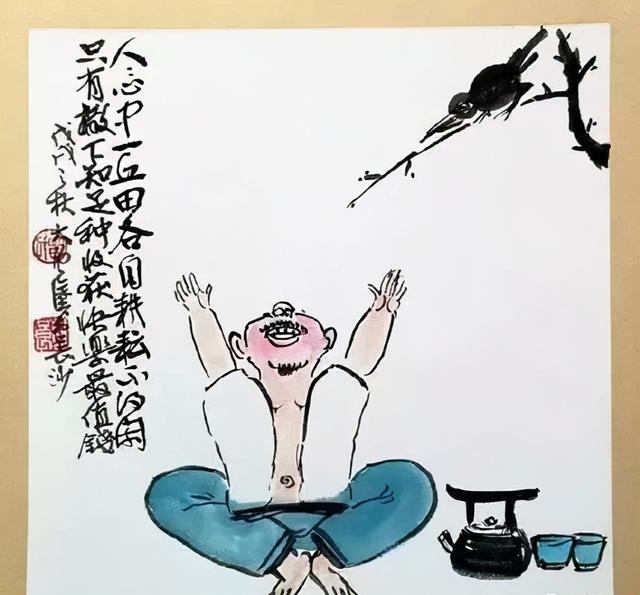 人心中一丘田各自耕耘不得闲
只有撒下知足种收获快乐最值钱
戊戌之秋
长沙